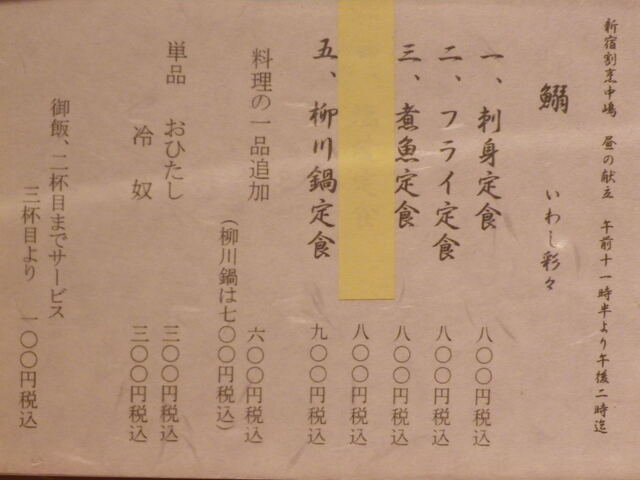 新宿割烹中嶋 昼の献立 午前十一時半より午後二時迄
鰯 いわし彩々
一、刺身定食 八〇〇円税込
二、フライ定食 八〇〇円税込
三、煮魚定食 八〇〇円税込
定食 八〇〇円税込
五、柳川鍋定食 九〇〇円税込
料理の一品追加 六〇〇円税込
(柳川鍋は七〇〇円税込)
単品 おひたし 三〇〇円税込
冷奴 三〇〇円税込
御飯、二杯目までサービス
三杯目より 一〇〇円税込